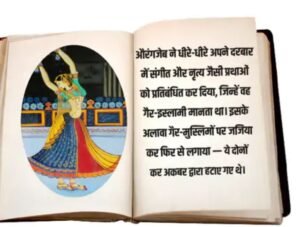 औरंगजेब ने धीरे-धीरे अपने दरबार
में संगीत और नृत्य जैसी प्रथाओं
को प्रतिबंधित कर दिया, जिन्हें वह
गैर-इस्लामी मानता था। इसके
अलावा गैर-मुस्लिमों पर जजिया
कर फिर से लगाया — ये दोनों
कर अकबर द्वारा हटाए गए थे।